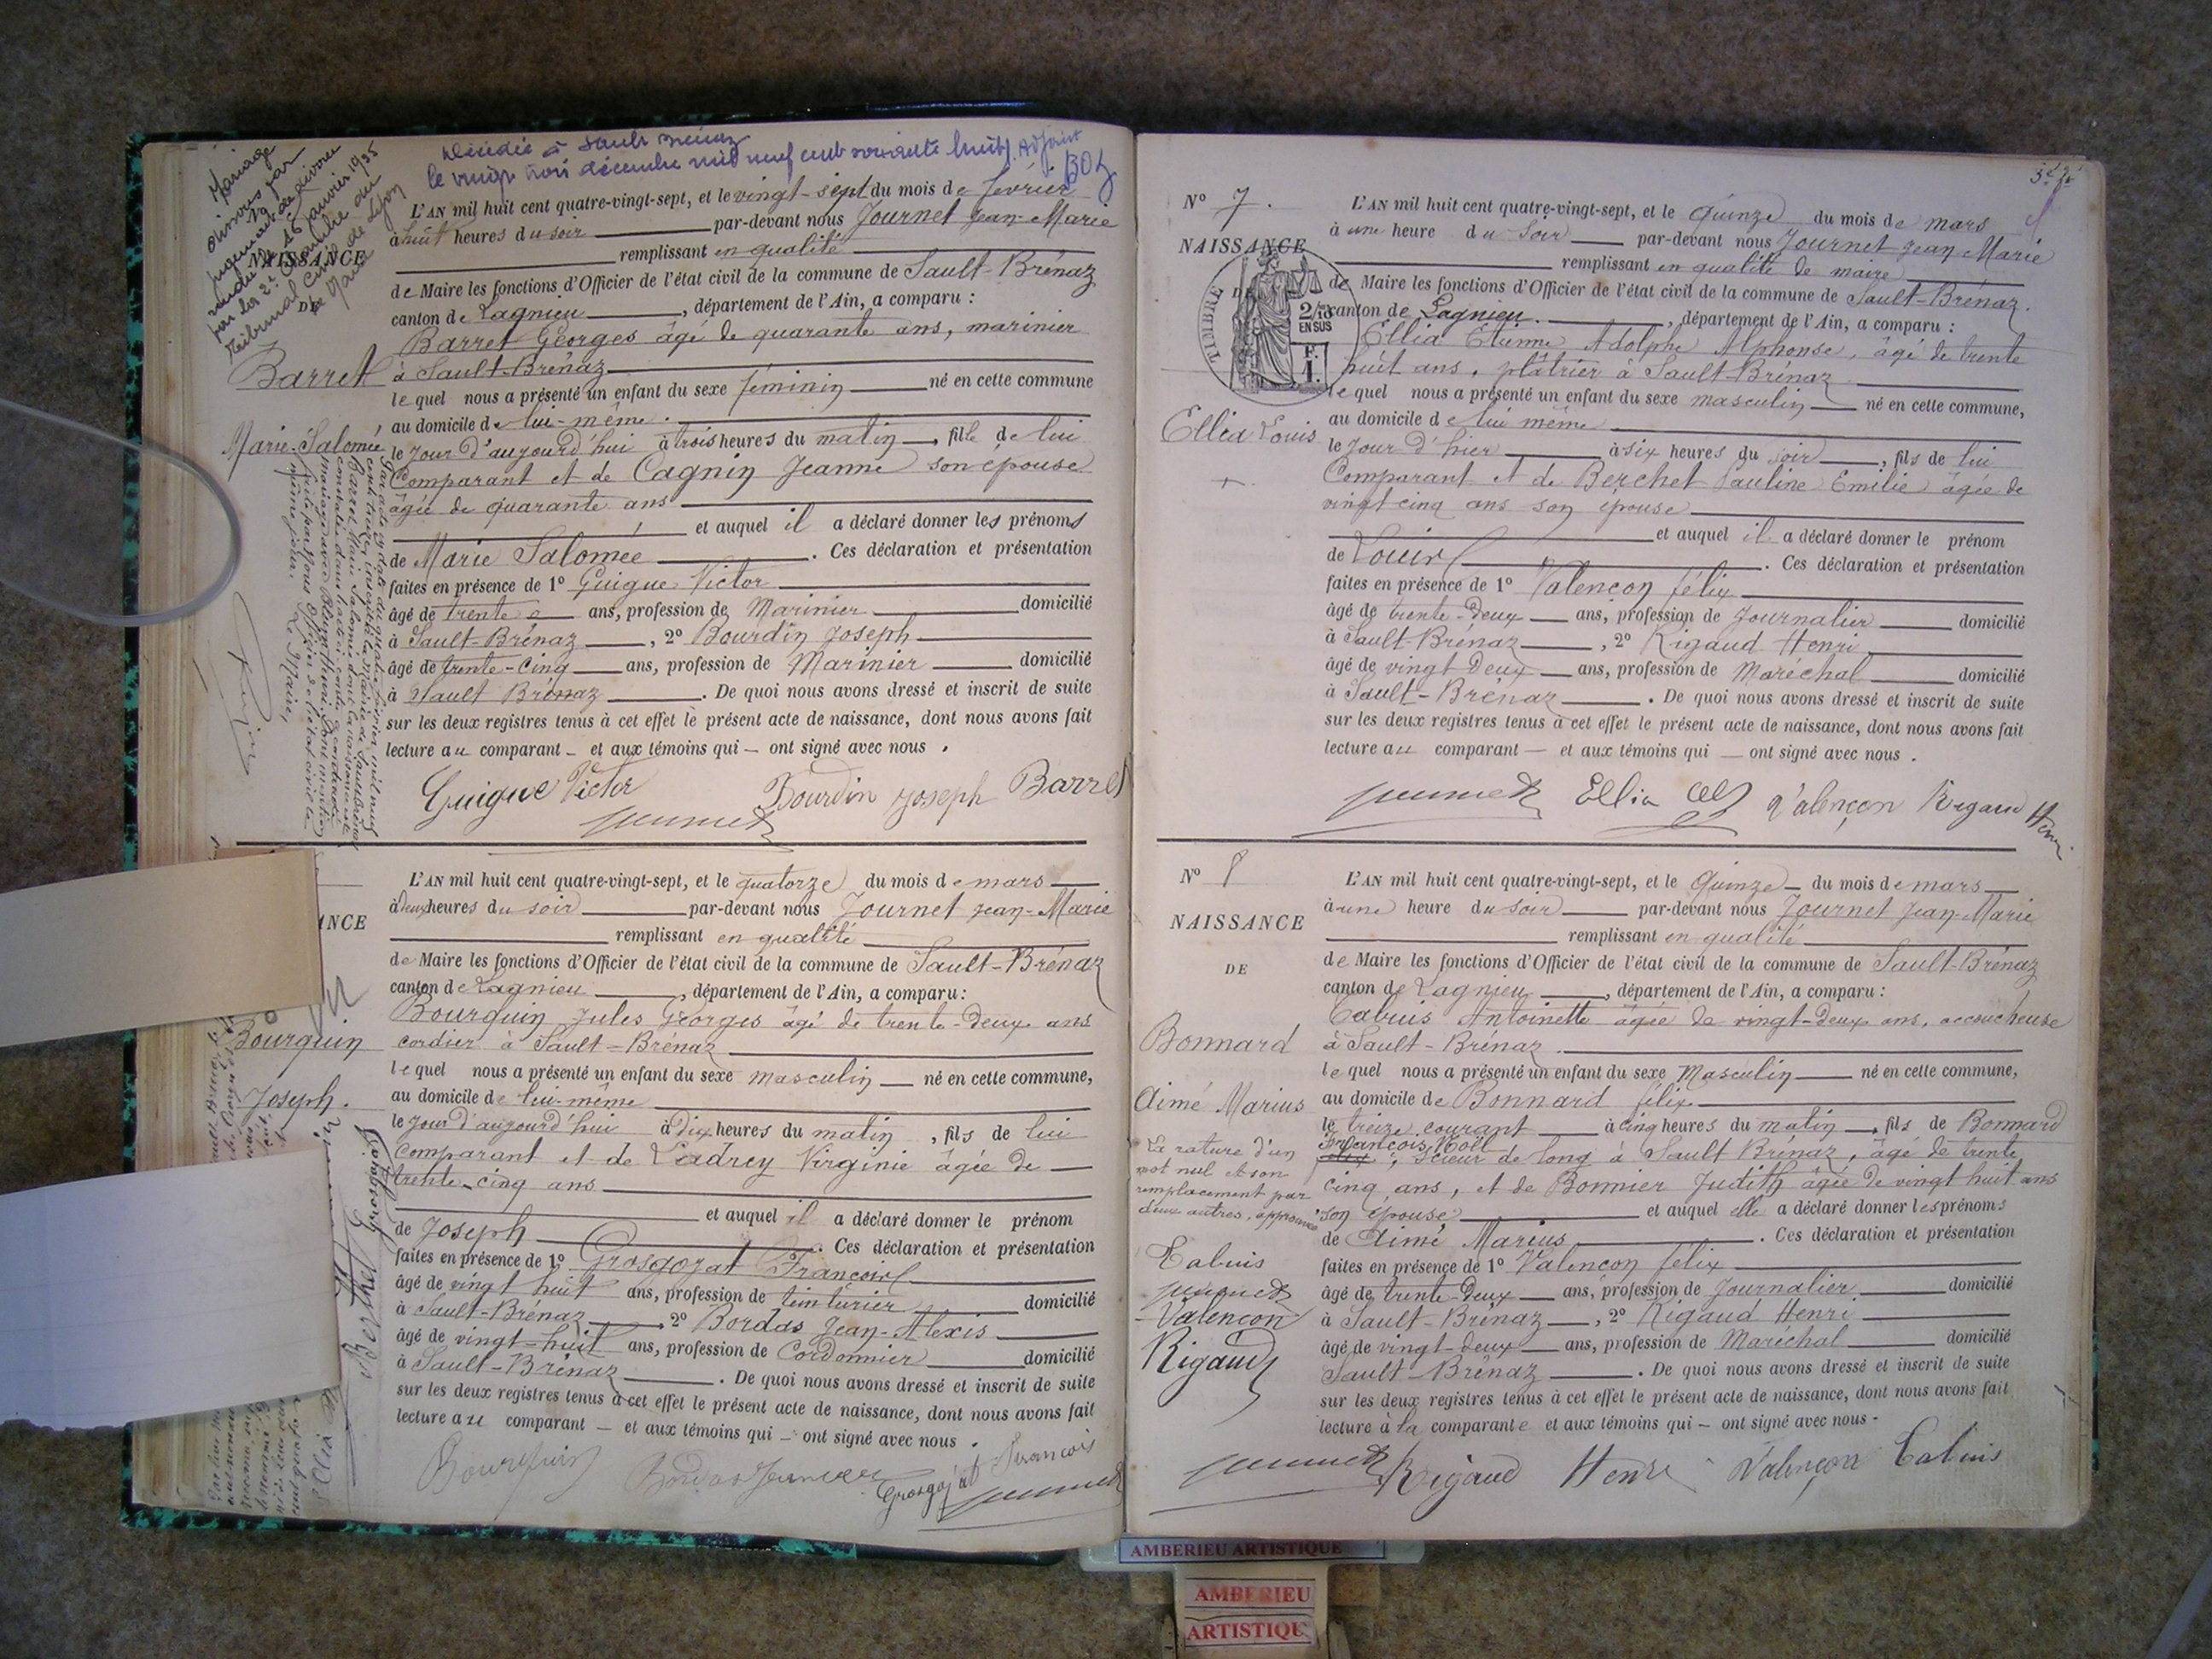 Décédée à Sault Brénaz
le vingt trois décembre mil neuf cent soixante huit. Adjoint
Mariage
dissous par
jugement de divorce
rendu le 26 janvier 1935
par la 2e Chambre du
Tribunal Civil de Lyon
Le Maire
NAISSANCE
DE
Barret
Marie-Salomée
L'AN mil huit cent quatre-vingt-sept, et le vingt-sept du mois de février
à huit heures du soir par-devant nous Journet Jean-Marie
remplissant en qualité
de Maire les fonctions d'Officier de l'état civil de la commune de Sault-Brénaz
canton de Lagnieu, département de l'Ain, a comparu :
Barret Georges âgé de quarante ans, marinier
à Sault-Brénaz
lequel nous a présenté un enfant du sexe féminin né en cette commune
au domicile de lui-même.
le jour d'aujourd'hui à trois heures du matin, fille de lui
Comparant et de Cagnin Jeanne son épouse
âgée de quarante ans
et auquel il a déclaré donner les prénoms
de Marie Salomée. Ces déclaration et présentation
faites en présence de 1º Guigue Victor
âgé de trente ans, profession de Marinier domicilié
à Sault-Brénaz, 2º Bourdin Joseph
âgé de trente-cinq ans, profession de Marinier domicilié
à Sault Brénaz. De quoi nous avons dressé et inscrit de suite
sur les deux registres tenus à cet effet le présent acte de naissance, dont nous avons fait
lecture au comparant et aux témoins qui ont signé avec nous.
Guigue Victor Bourdin Joseph Barret
Journet
ANCE
Bourquin
Joseph.
L'AN mil huit cent quatre-vingt-sept, et le quatorze du mois de mars
à deux heures du soir par-devant nous Journet Jean-Marie
remplissant en qualité
de Maire les fonctions d'Officier de l'état civil de la commune de Sault-Brénaz
canton de Lagnieu, département de l'Ain, a comparu :
Bourquin Jules Georges âgé de trente-deux ans
cordier à Sault-Brénaz
lequel nous a présenté un enfant du sexe masculin né en cette commune,
au domicile de lui-même
le jour d'aujourd'hui à dix heures du matin, fils de lui
comparant et de Ladrey Virginie âgée de
trente-cinq ans
et auquel il a déclaré donner le prénom
de Joseph. Ces déclaration et présentation
faites en présence de 1º Grosgojat François
âgé de vingt huit ans, profession de teinturier domicilié
à Sault-Brénaz 2º Bordas Jean-Alexis
âgé de vingt-huit ans, profession de Cordonnier domicilié
à Sault-Brénaz. De quoi nous avons dressé et inscrit de suite
sur les deux registres tenus à cet effet le présent acte de naissance, dont nous avons fait
lecture au comparant et aux témoins qui ont signé avec nous.
Bourquin Grosgojat François
Journet
Nº 7.
NAISSANCE
DE
TIMBRE
2/10
EN SUS
F.
1.
Ellia Louis
L'AN mil huit cent quatre-vingt-sept, et le quinze du mois de mars
à une heure du soir par-devant nous Journet Jean Marie
remplissant en qualité de maire
de Maire les fonctions d'Officier de l'état civil de la commune de Sault-Brénaz.
canton de Lagnieu., département de l'Ain, a comparu :
Ellia Etienne Adolphe Alphonse, âgé de trente
huit ans, plâtrier à Sault-Brénaz
lequel nous a présenté un enfant du sexe masculin né en cette commune,
au domicile de lui même
le jour d'hier à six heures du soir, fils de lui
Comparant et de Berchet Pauline Emélie âgée de
vingt cinq ans son épouse
et auquel il a déclaré donner le prénom
de Louis. Ces déclaration et présentation
faites en présence de 1º Valençon félix
âgé de trente-deux ans, profession de Journalier domicilié
à Sault-Brénaz, 2º Rigaud Henri
âgé de vingt deux ans, profession de Maréchal domicilié
à Sault-Brénaz. De quoi nous avons dressé et inscrit de suite
sur les deux registres tenus à cet effet le présent acte de naissance, dont nous avons fait
lecture au comparant et aux témoins qui ont signé avec nous.
Journet Ellia Valençon Rigaud Henri
Nº 8
NAISSANCE
DE
Bonnard
Aimé Marius
La rature d'un
mot nul et son
remplacement par
deux autres, approuvé
Cabuis
Journet
Valençon
Rigaud
L'AN mil huit cent quatre-vingt-sept, et le Quinze du mois de mars
à une heure du soir par-devant nous Journet Jean-Marie
remplissant en qualité
de Maire les fonctions d'Officier de l'état civil de la commune de Sault-Brénaz
canton de Lagnieu, département de l'Ain, a comparu :
Cabuis Antoinette âgée de vingt-deux ans, accoucheuse
à Sault-Brénaz.
lequel nous a présenté un enfant du sexe Masculin né en cette commune,
au domicile de Bonnard félix
le treize courant à cinq heures du matin, fils de Bonnard
François Noël
félix, scieur de long à Sault Brénaz, âgé de trente
cinq ans, et de Bonnier Judith âgée de vingt huit ans
son épouse et auquel elle a déclaré donner les prénoms
de Aimé Marius. Ces déclaration et présentation
faites en présence de 1º Valençon félix
âgé de trente-deux ans, profession de Journalier domicilié
à Sault-Brénaz, 2º Rigaud Henri
âgé de vingt-deux ans, profession de Maréchal domicilié
Sault-Brénaz. De quoi nous avons dressé et inscrit de suite
sur les deux registres tenus à cet effet le présent acte de naissance, dont nous avons fait
lecture à la comparante et aux témoins qui ont signé avec nous.
Journet Rigaud Henri Valençon Cabuis
AMBERIEU ARTISTIQUE
AMBERIEU
ARTISTIQU